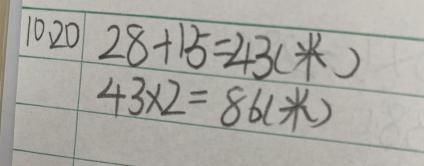 10.20 28+15=43(米)
43×2=86(米)